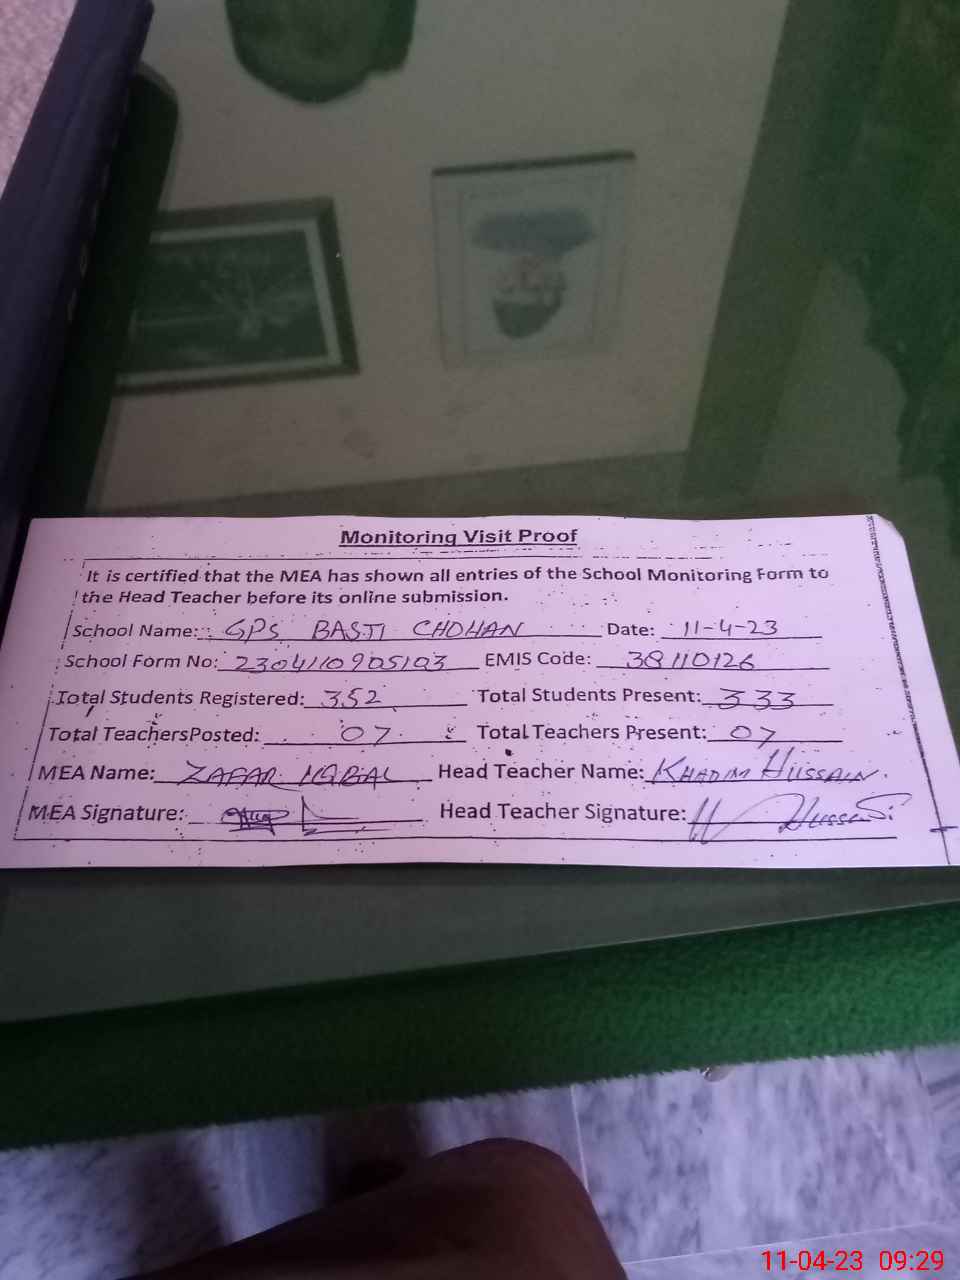 Monitoring Visit Proof
It is certified that the MEA has shown all entries of the School Monitoring Form to
the Head Teacher before its online submission.
School Name: GPS BASTI CHOHAN Date: 11-4-23
School Form No: 2304110905193 EMIS Code: 38110126
Total Students Registered: 352 Total Students Present: 333
Total TeachersPosted: 07 Total Teachers Present: 07
MEA Name: ZAFAR IQBAL Head Teacher Name: KHADIM HUSSAIN.
MEA Signature: Head Teacher Signature:
11-04-23 09:29